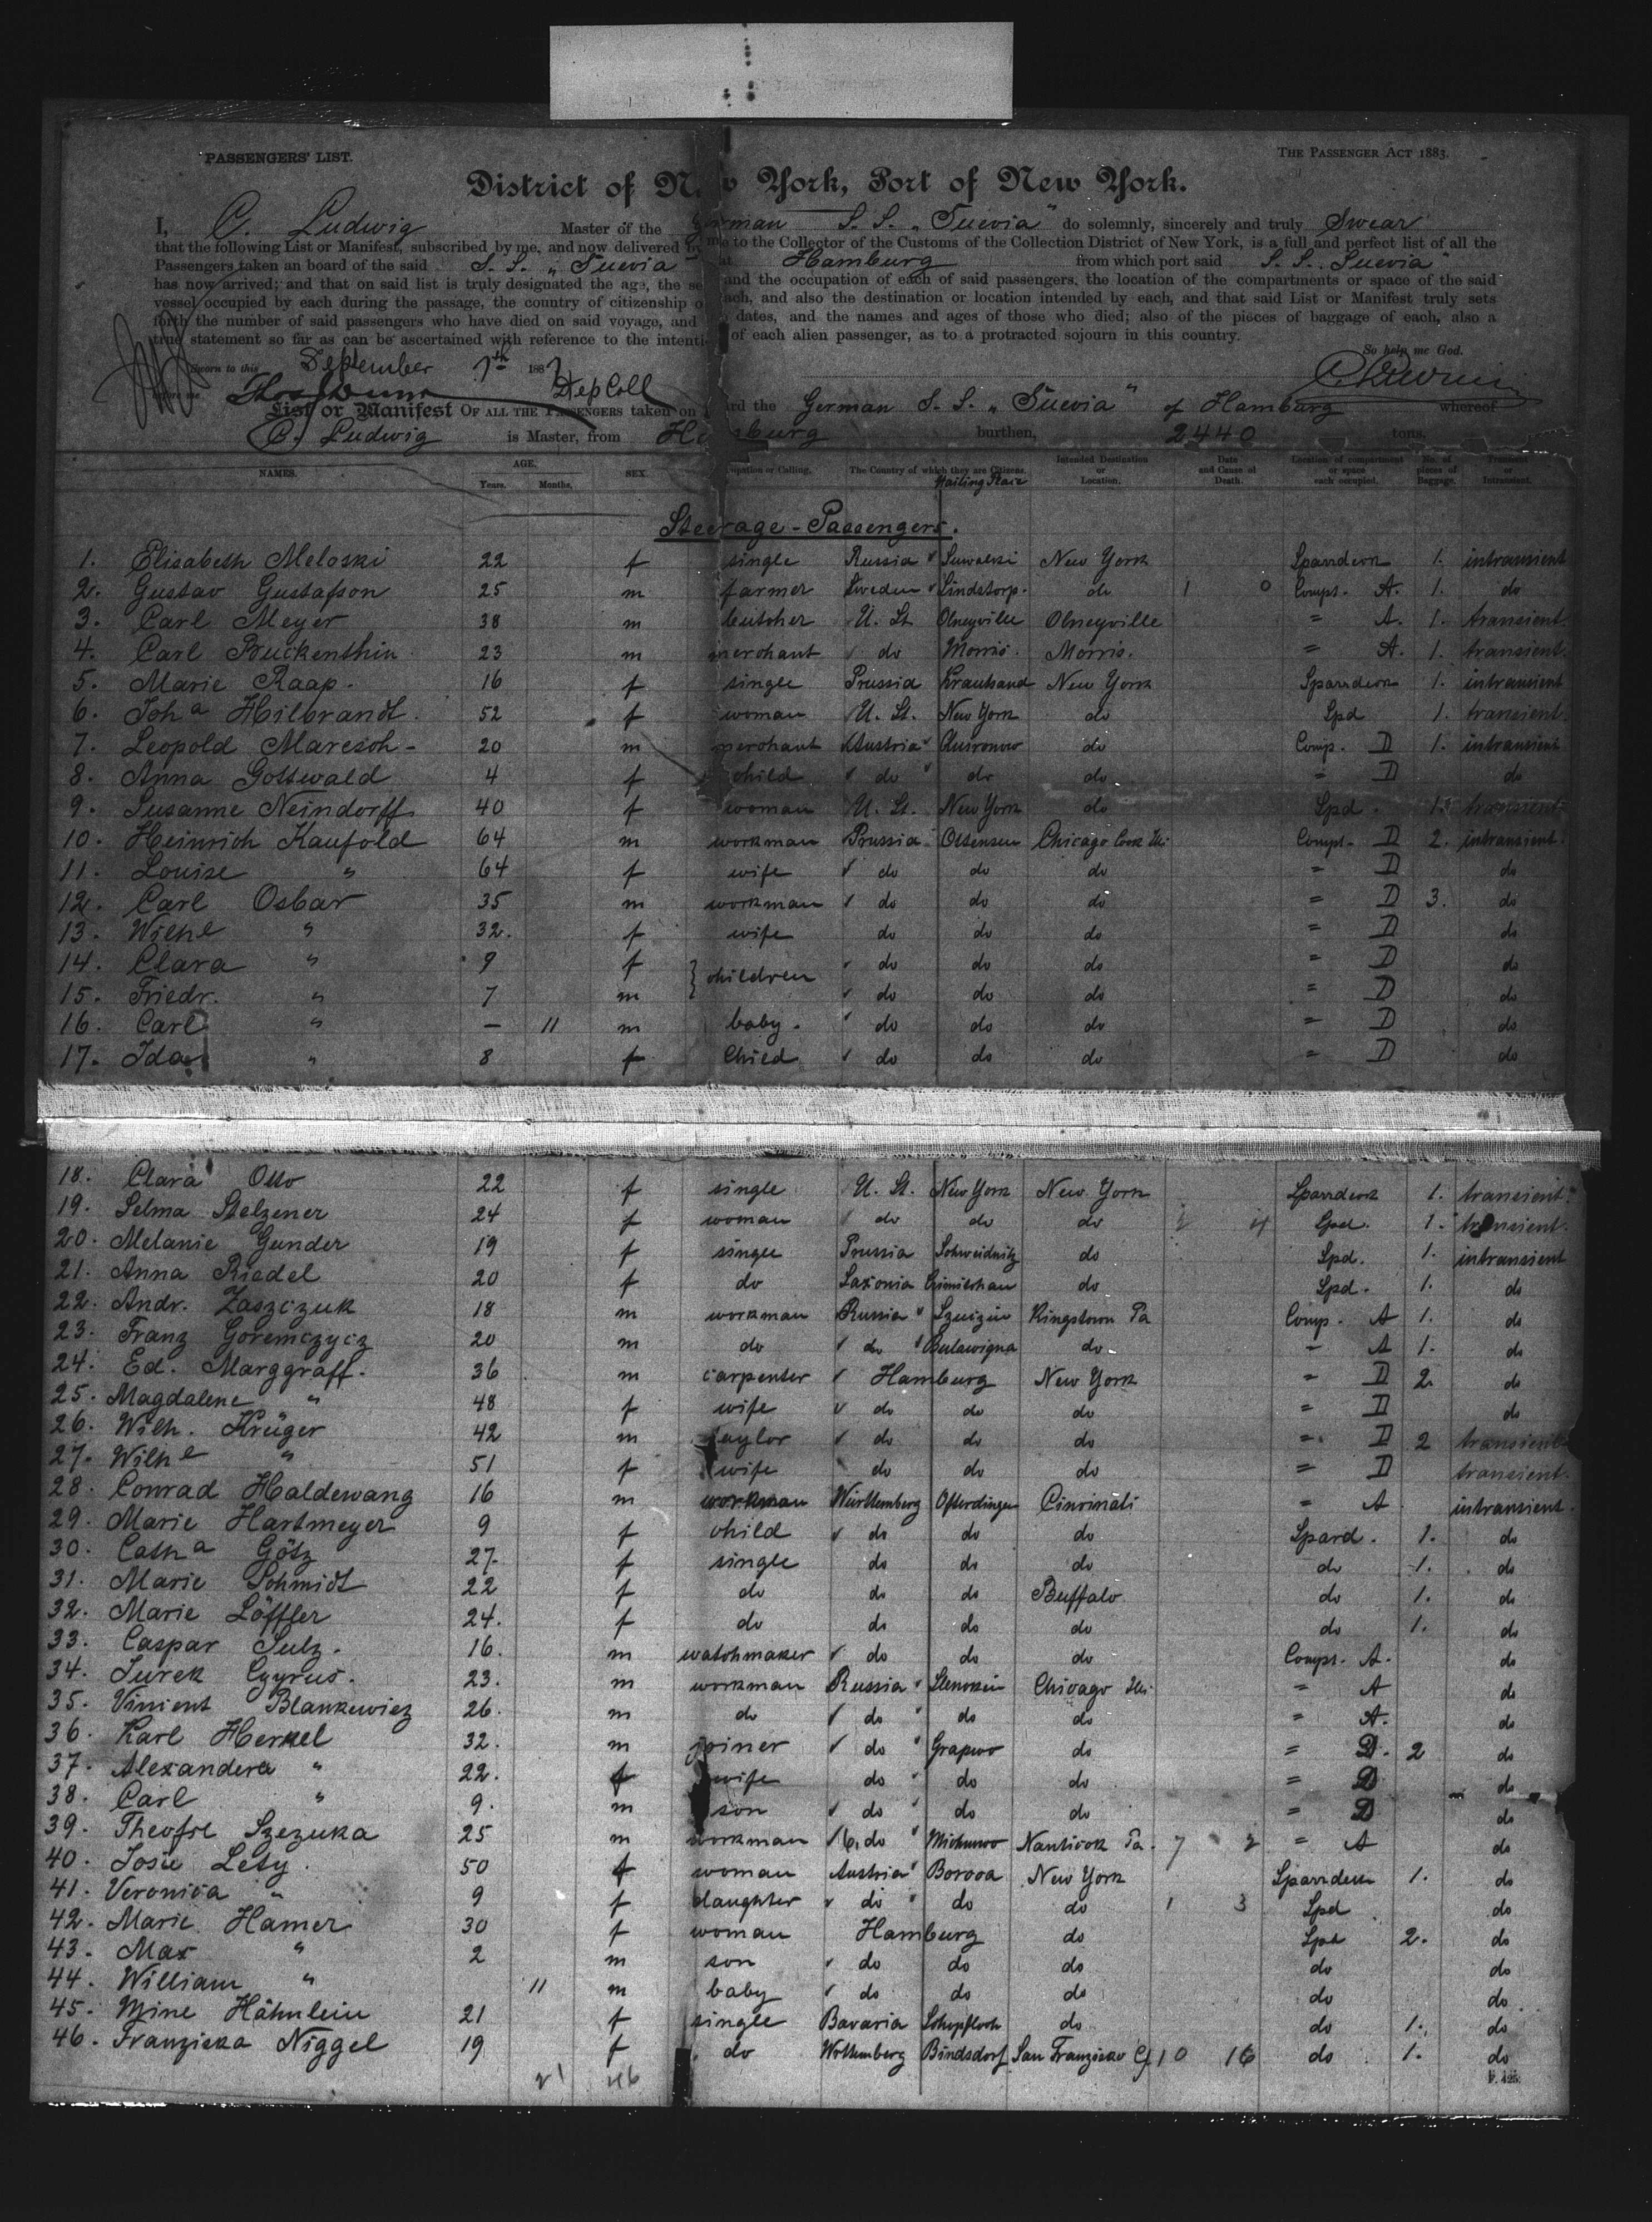 PASSENGERS' LIST.
THE PASSENGER ACT 1883.
District of New York, Port of New York.
I, C. Ludwig Master of the German S. S. „Suevia" do solemnly, sincerely and truly Swear
that the following List or Manifest, subscribed by me, and now delivered by me to the Collector of the Customs of the Collection District of New York, is a full and perfect list of all the
Passengers taken on board of the said S. S. „Suevia" at Hamburg from which port said S. S. „Suevia"
has now arrived; and that on said list is truly designated the age, the se and the occupation of each of said passengers, the location of the compartments or space of the said
vessel occupied by each during the passage, the country of citizenship o each, and also the destination or location intended by each, and that said List or Manifest truly sets
forth the number of said passengers who have died on said voyage, and dates, and the names and ages of those who died; also of the pieces of baggage of each, also a
true statement so far as can be ascertained with reference to the intenti of each alien passenger, as to a protracted sojourn in this country.
So help me God.
Sworn to this September 7th 188
before me Dep Coll
List or Manifest OF ALL THE PASSENGERS taken on board the German S. S. „Suevia" of Hamburg whereof
C. Ludwig is Master, from Hamburg burthen, 2440 tons.
NAMES. AGE. Years. Months. SEX. Occupation or Calling. The Country of which they are Citizens. Hailing Place Intended Destination or Location. Date and Cause of Death. Location of compartment or space each occupied. No. of pieces of Baggage. Transient or Intransient.
Steerage-Passengers.
1. Elisabeth Meloski 22 f single Russia Suwalki New York Sparrdeck 1. intransient
2. Gustav Gustafson 25 m farmer Sweden Lindstorp. do 1 0 Compt. A. 1. do
3. Carl Meyer 38 m butcher U. St. Olneyville Olneyville = A. 1. transient.
4. Carl Buckenthin 23 m merchant do Morris. Morris. = A. 1. transient.
5. Marie Raap. 16 f single Prussia Krautsand New York Sparrdeck 1. intransient
6. Joha Hilbrandt. 52 f woman U. St. New York do Spd 1. transient.
7. Leopold Maresch- 20 m merchant Austria do Comp. D 1. intransient
8. Anna Gottwald 4 f child do do do = D do
9. Susanne Neindorff 40 f woman U. St. New York do Spd. 1. transient
10. Heinrich Kaufold 64 m workman Prussia Ottensen Chicago Cook Ill. Compt. D 2. intransient.
11. Louise " 64 f wife do do do = D do
12. Carl Osbar 35 m workman do do do = D 3. do
13. Wilhe " 32. f wife do do do = D do
14. Clara " 9 f } children do do do = D do
15. Friedr. " 7 m do do do = D do
16. Carl " — 11 m baby. do do do = D do
17. Ida " 8 f Child do do do = D do
18. Clara Otto 22 f single U. St. New York New York Sparrdeck 1. transient.
19. Selma Stelzener 24 f woman do do do 2 4 Spd. 1. transient.
20. Melanie Gunder 19 f single Prussia Schweidnitz do Spd. 1. intransient
21. Anna Riedel 20 f do Saxonia do Spd. 1. do
22. Andr. Zaszczuk 18 m workman Russia Kingstown Pa Comp. A 1. do
23. Franz Goremczycz 20 m do do do. - A 1. do
24. Ed. Marggraff. 36 m carpenter Hamburg New York = D 2. do
25. Magdalene " 48 f wife do do do = D do
26. Wilh. Krüger 42 m taylor do do do = D 2 transient.
27. Wilhe " 51 f wife do do do = D transient.
28. Conrad Haldewang 16 m workman Württemberg Ofterdingen Cincinati = A intransient.
29. Marie Hartmeyer 9 f child do do do Spard. 1. do
30. Catha Götz 27. f single do do do do 1. do
31. Marie Schmidt 22 f do do do Buffalo do 1. do
32. Marie Löffler 24. f do do do do do 1. do
33. Caspar Sulz. 16. m watchmaker do do do Compt. A. do
34. Jurek Czyrus. 23. m workman Russia Chicago Ill. = A do
35. Vincent Blankewicz 26. m do do do do = A. do
36. Karl Herkel 32. m joiner do Grapwo do = D. 2 do
37. Alexandera " 22. f wife do do do = D do
38. Carl " 9. m son do do do = D do
39. Theofil Szezuka 25 m workman do Nanticok Pa. 7 2 = A do
40. Josie Lety. 50 f woman Austria Borova New York Sparrdeck 1. do
41. Veronica " 9 f daughter do do do 1 3 Spd do
42. Marie Hamer 30 f woman Hamburg do Spd 2. do
43. Max " 2 m son do do do do do
44. William " 11 m baby do do do do do.
45. Mine Hähnlein 21 f single Bavaria Schopfloch do do 1. do
46. Franziska Niggel 19 f do Wüttemberg Bindsdorf San Franzisko Cf 10 16 do 1. do
21 46
F. 425.